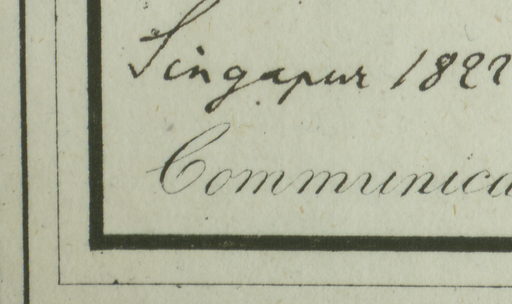 Singapur 1822
Communica